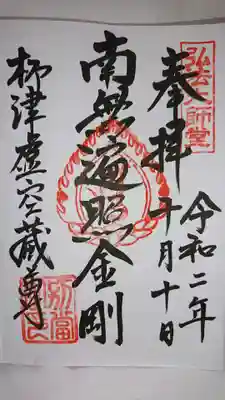 弘法大師堂
奉拝
令和二年
十月十日
南無遍照金剛
柳津虚空蔵尊